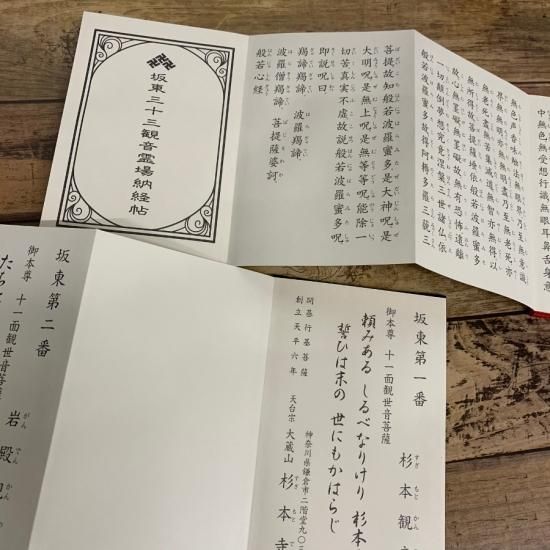 坂東三十三観音霊場納経帖
中無色無受想行識無眼耳鼻舌身意
無色声香味触法無眼界乃至無意識
界無無明亦無無明尽乃至無老死亦
無老死尽無苦集滅道無智亦無得以
無所得故菩提薩埵依般若波羅蜜多
故心無罣礙無罣礙故無有恐怖遠離
一切顛倒夢想究竟涅槃三世諸仏依
般若波羅蜜多故得阿耨多羅三藐三
菩提故知般若波羅蜜多是大神呪是
大明呪是無上呪是無等等呪能除一
切苦真実不虚故説般若波羅蜜多呪
即説呪曰
羯諦羯諦、波羅羯諦、
波羅僧羯諦、菩提薩婆訶、
般若心経
坂東第一番
杉本観
御本尊 十一面観世音菩薩
頼みある しるべなりけり 杉本
誓ひは末の 世にもかはらじ
開基行基菩薩
創立天平六年
神奈川県鎌倉市二階堂九〇三
天台宗 大蔵山 杉本寺
坂東第二番
御本尊 十一面観世音菩薩
岩殿観
たちよ